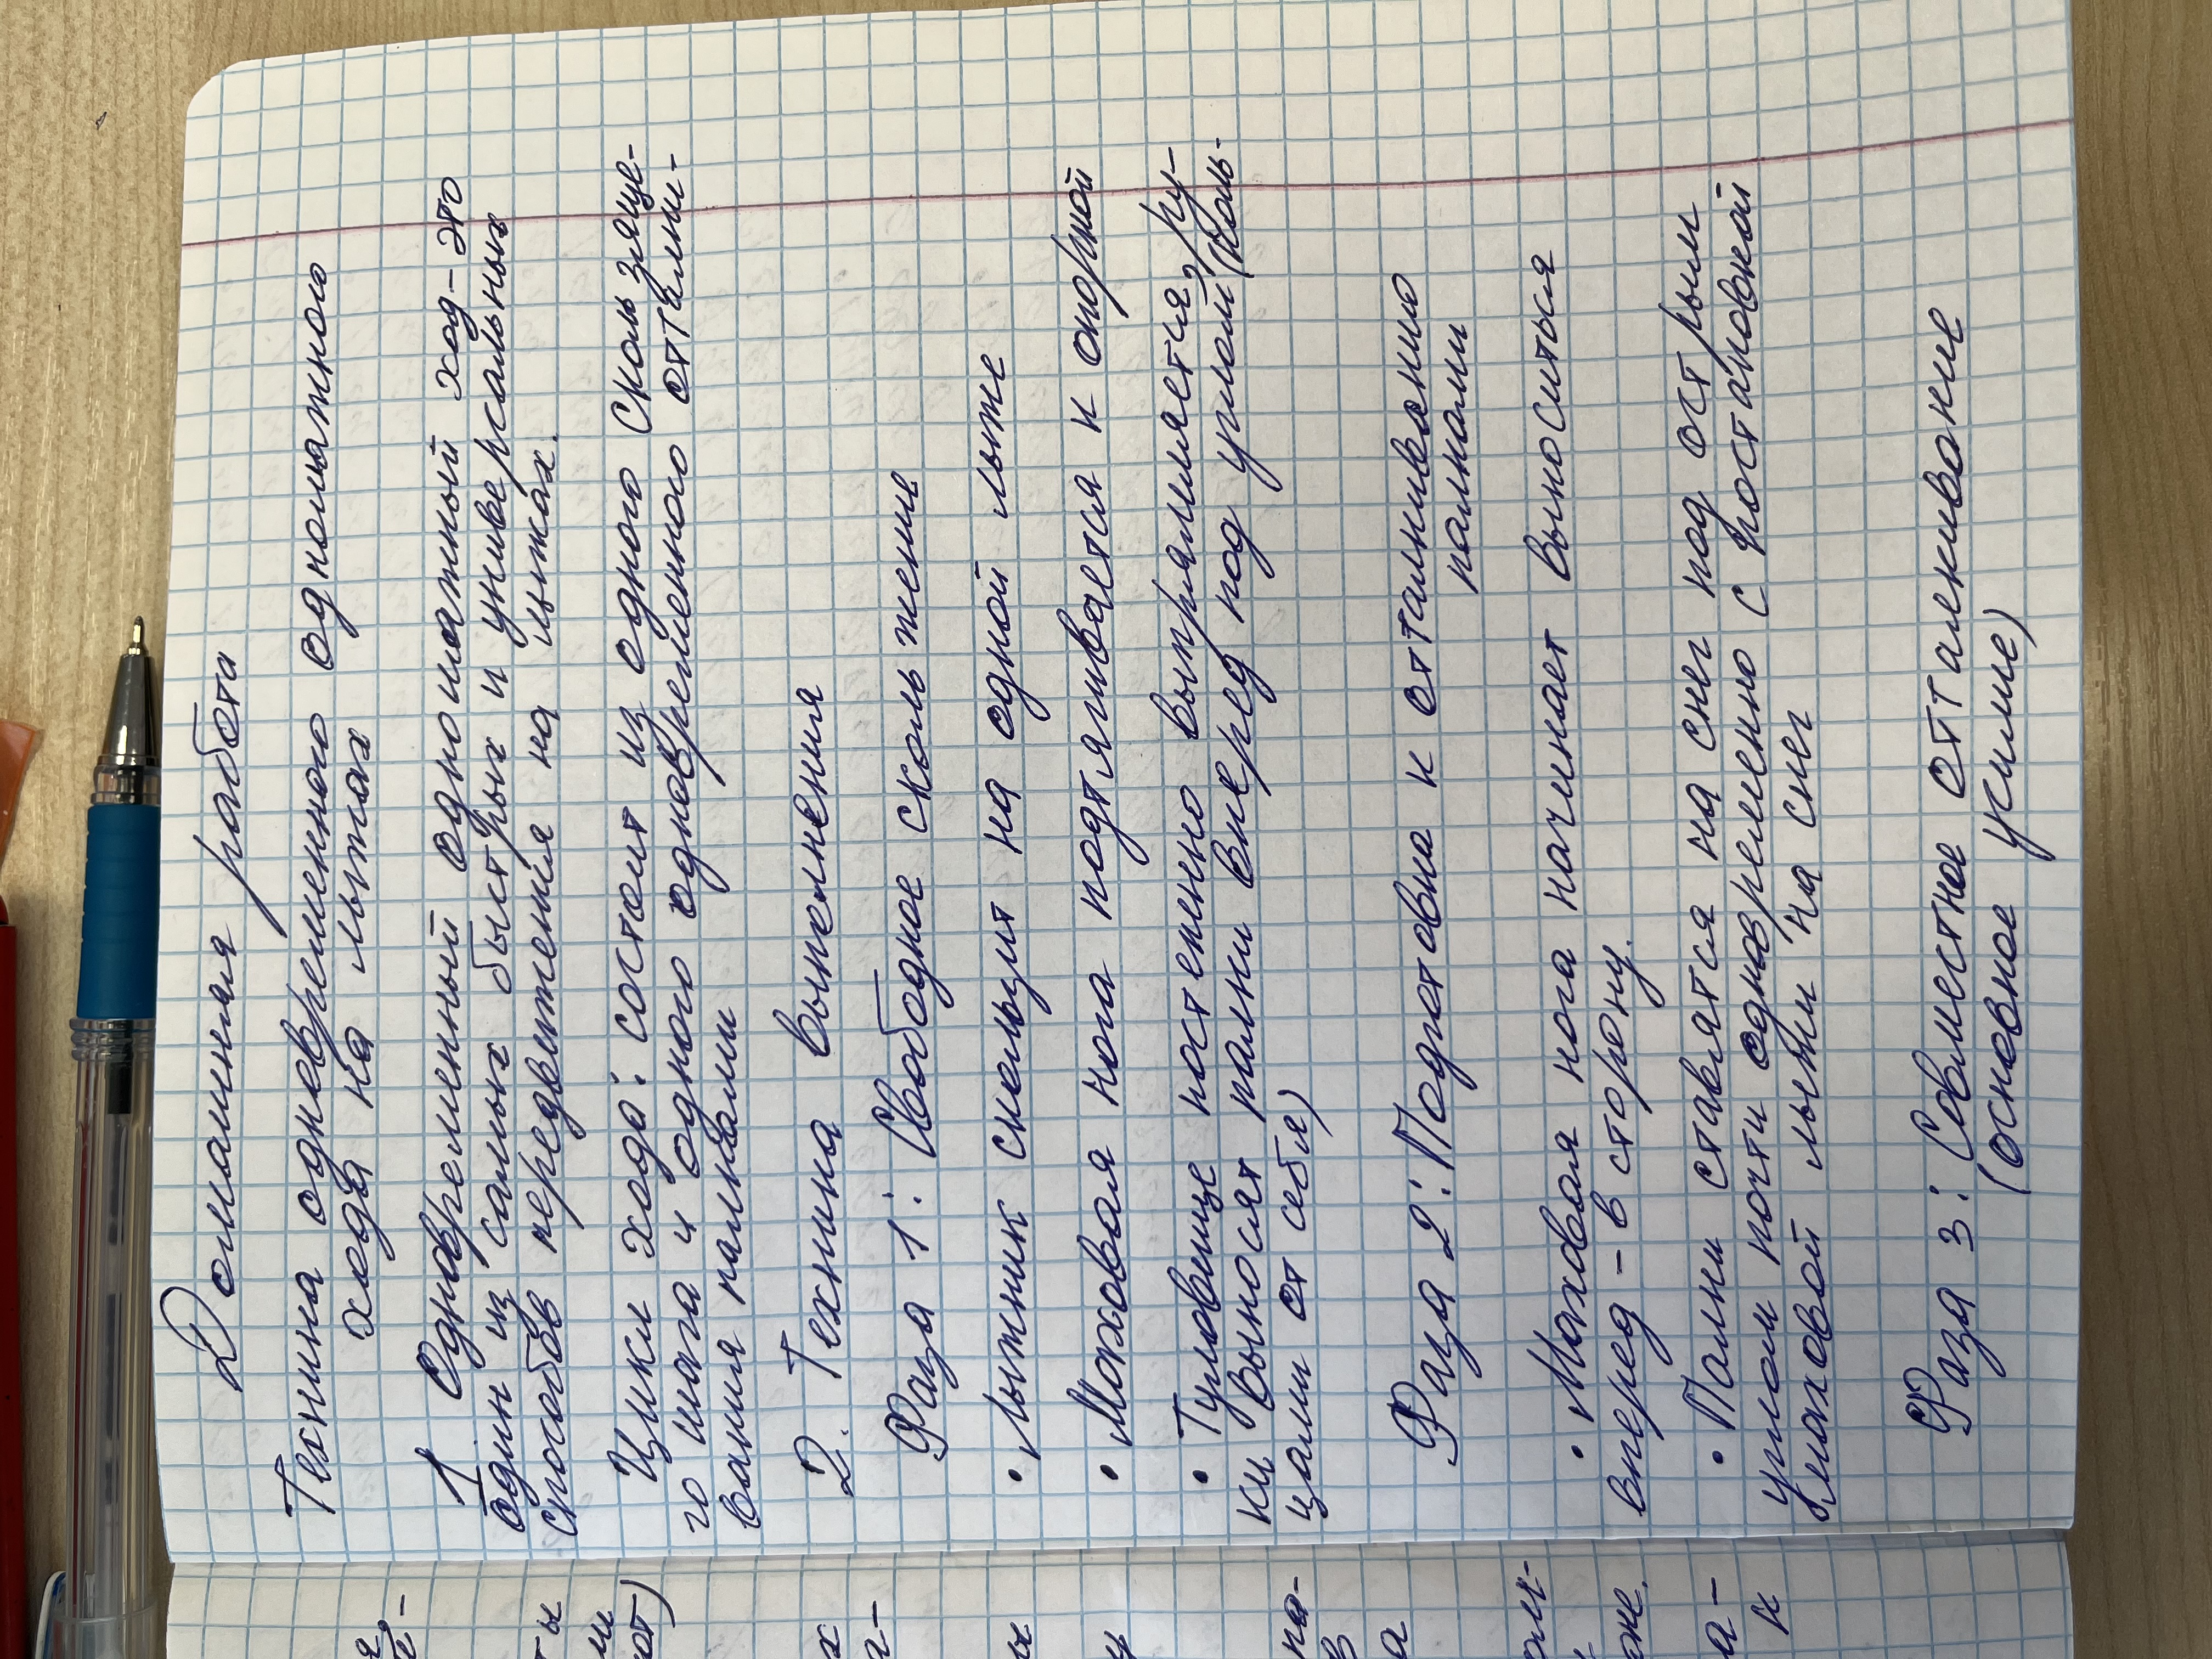 Домашняя работа
Техника одновременного одношажного
хода на лыжах
1 Одновременный одношажный ход - это
один из самых быстрых и универсальных
способов передвижения на лыжах.
Цикл хода: состоит из одного скользяще-
го шага и одного одновременного отталки-
вания палками
2. Техника выполнения
Фаза 1: Свободное скольжение
• Лыжник скользит на одной лыже
• Маховая нога подтягивается к опорной
• Туловище постепенно выпрямляется, ру-
ки выносят палки вперед под углом (коль-
цами от себя)
Фаза 2: Подготовка к отталкиванию
палками
• Маховая нога начинает выноситься
вперед - в сторону.
• Палки ставятся на снег под острым
углом почти одновременно с постановкой
маховой лыжи на снег
Фаза 3: Совместное отталкивание
(основное усилие)